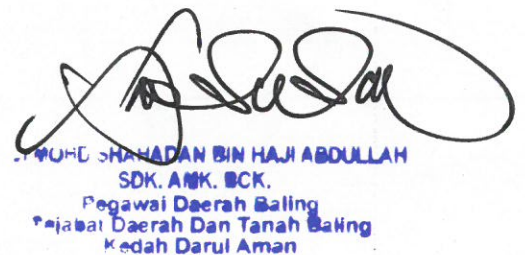 MOHD SHAHADAN BIN HAJI ABDULLAH
SDK. AMK. BCK.
Pegawai Daerah Baling
Pejabat Daerah Dan Tanah Baling
Kedah Darul Aman